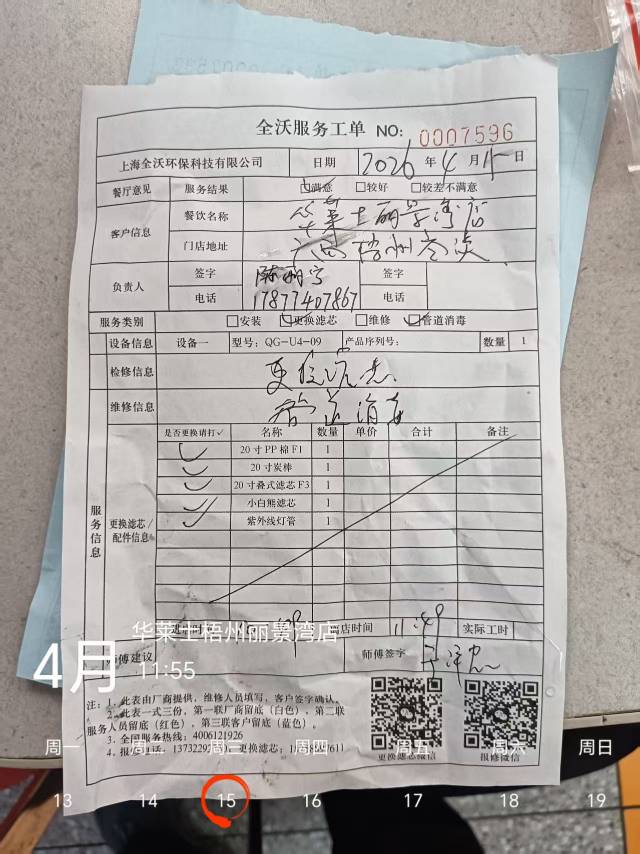 全沃服务工单 NO: 0007596
上海全沃环保科技有限公司 日期 2026 年 4 月 15 日
餐厅意见 服务结果 ☑满意 □较好 □较差不满意
客户信息 餐饮名称 华莱士丽景湾店
门店地址 广西梧州
负责人 签字 签字
电话 17877407867 电话
服务类别 □安装 ☑更换滤芯 □维修 ☑管道消毒
设备信息 设备一 型号: QG-U4-09 产品序列号: 数量 1
检修信息 更换滤芯
维修信息 管道消毒
服务信息 更换滤芯/配件信息
是否更换请打✓ 名称 数量 单价 合计 备注
✓ 20寸PP棉F1 1
✓ 20寸炭棒 1
✓ 20寸叠式滤芯F3 1
✓ 小白熊滤芯 1
✓ 紫外线灯管 1
店时间 11:49 实际工时
师傅建议 师傅签字
华莱士梧州丽景湾店
4月 11:55
注: 1. 此表由厂商提供，维修人员填写，客户签字确认。
2. 此表一式三份，第一联厂商留底（白色）、第二联
服务人员留底（红色）、第三联客户留底（蓝色）。
3. 全国服务热线: 4006121926
更换滤芯微信 报修微信
周一 周二 周三 周四 周五 周六 周日
13 14 15 16 17 18 19